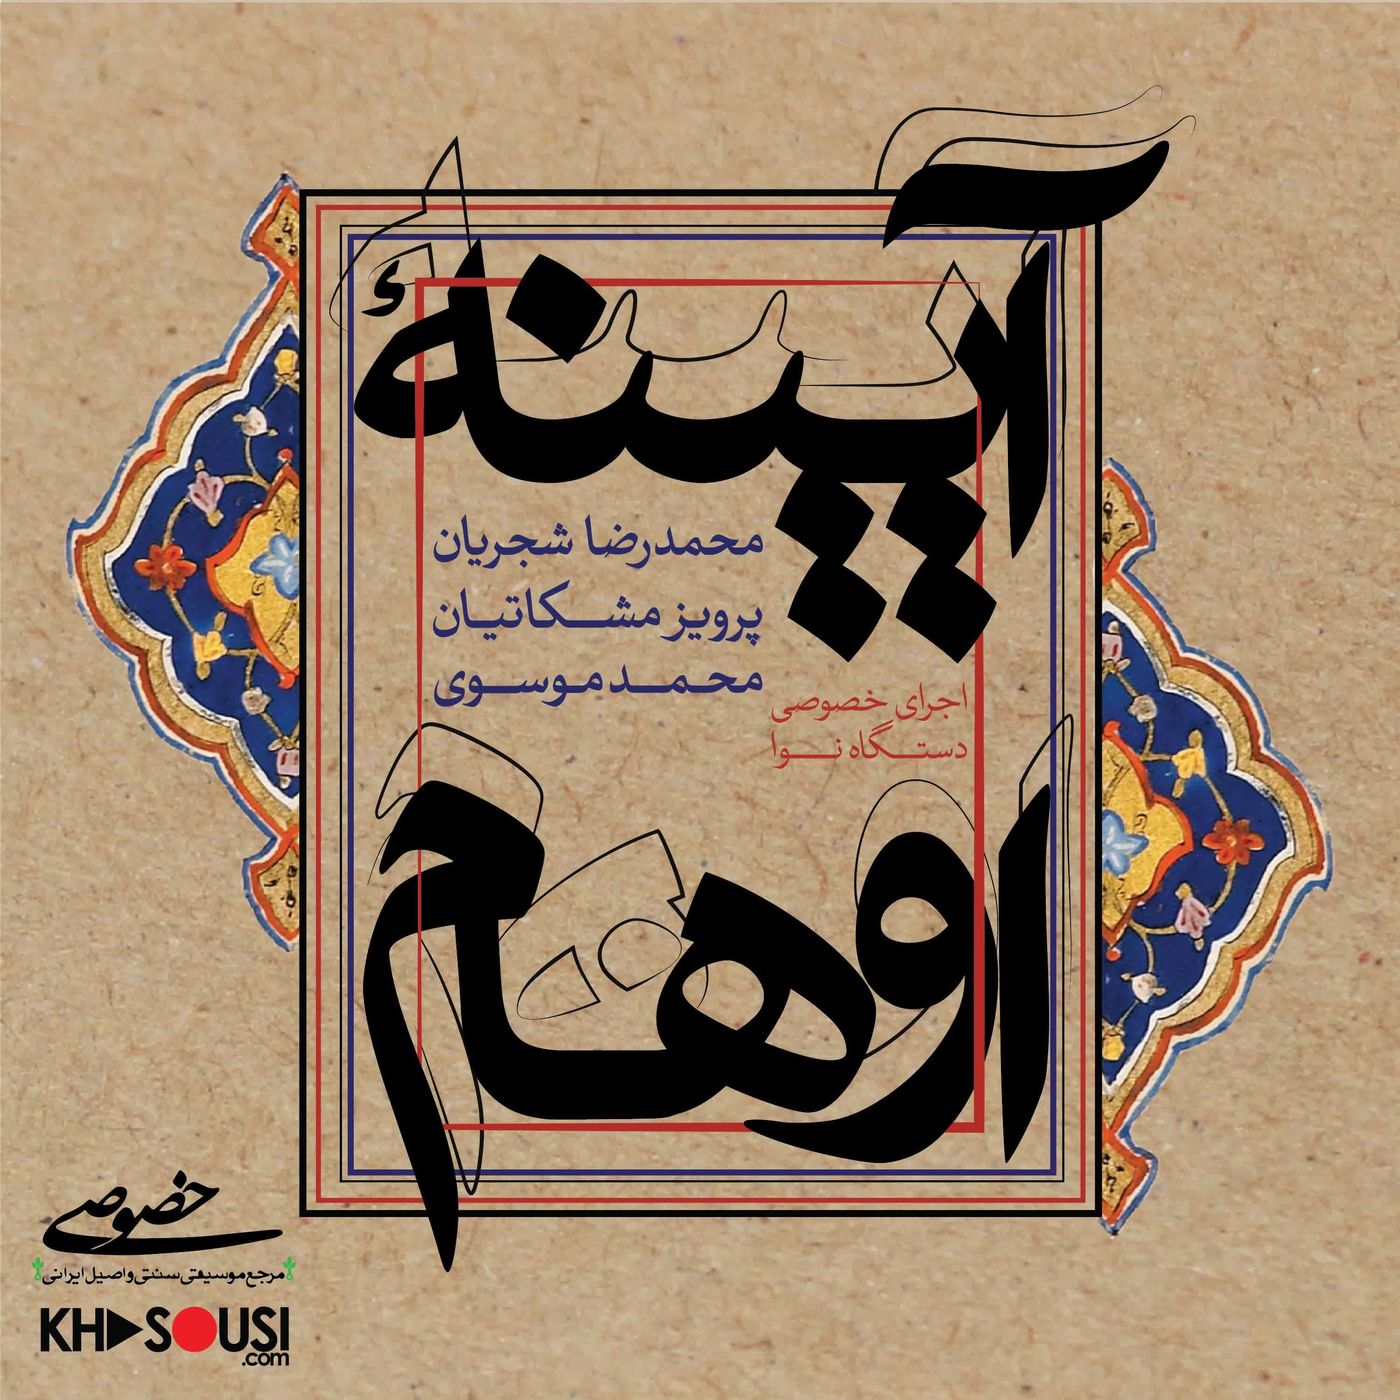 آیینهٔ
محمدرضا شجریان
پرویز مشکاتیان
محمد موسوی
اجرای خصوصی
دستگاه نوا
اوهام
خصوصی
مرجع موسیقی سنتی و اصیل ایرانی
KHASOUSI
.com